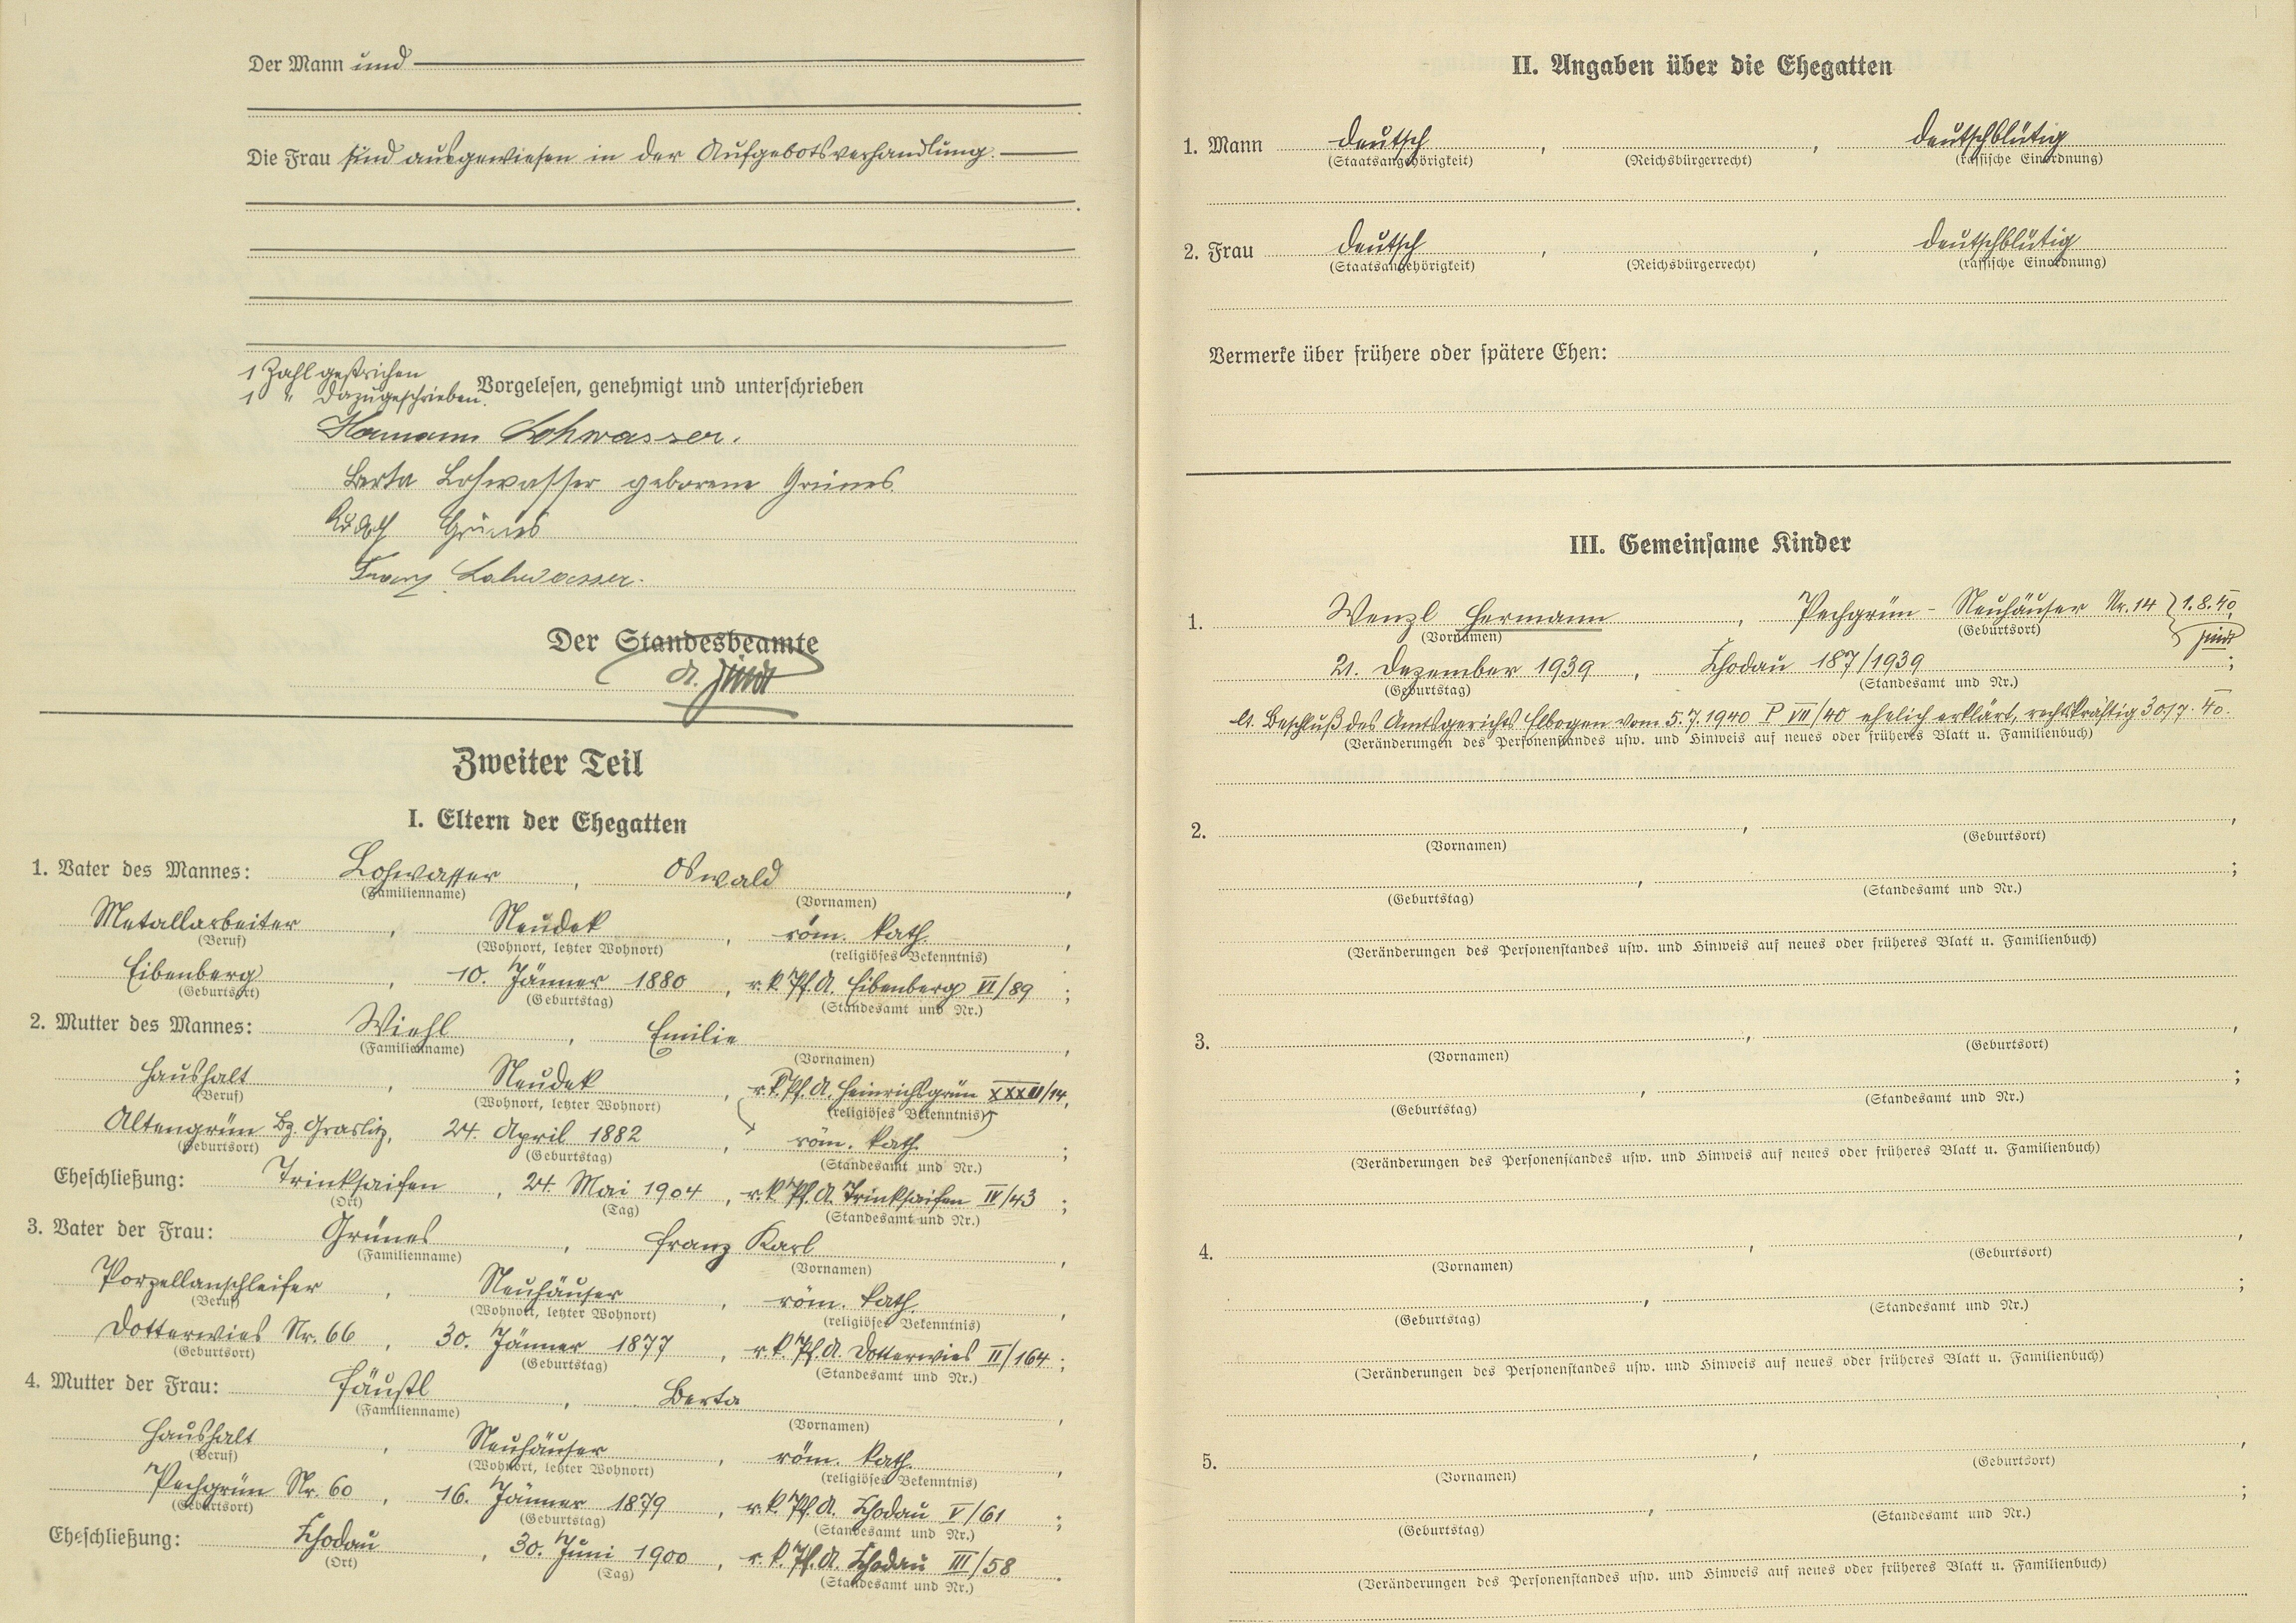 Der Mann und
Die Frau sind ausgewiesen in der Aufgebotsverhandlung.
1 Zahl gestrichen
1 " dazugeschrieben.
Vorgelesen, genehmigt und unterschrieben
Hermann Lohwasser.
Berta Lohwasser geborene Grünes.
Rudolf Grünes
Franz Lohwasser.
Der Standesbeamte
Zweiter Teil
I. Eltern der Ehegatten
1. Vater des Mannes: Lohwasser, Oswald,
(Familienname) (Vornamen)
Metallarbeiter, Neudek, röm. kath.,
(Beruf) (Wohnort, letzter Wohnort) (religiöses Bekenntnis)
Eibenberg, 10. Jänner 1880, r. k. Pf. A. Eibenberg VI/89;
(Geburtsort) (Geburtstag) (Standesamt und Nr.)
2. Mutter des Mannes: Wiehl, Emilie,
(Familienname) (Vornamen)
Haushalt, Neudek, r. k. Pf. A. Heinrichsgrün XXXIII/14,
(Beruf) (Wohnort, letzter Wohnort) (religiöses Bekenntnis)
Altengrün Bz. Graslitz, 24. April 1882, röm. kath.;
(Geburtsort) (Geburtstag) (Standesamt und Nr.)
Eheschließung: Trinksaifen, 24. Mai 1904, r. k. Pf. A. Trinksaifen IV/43;
(Ort) (Tag) (Standesamt und Nr.)
3. Vater der Frau: Grünes, Franz Karl,
(Familienname) (Vornamen)
Porzellanschleifer, Neuhäuser, röm. kath.,
(Beruf) (Wohnort, letzter Wohnort) (religiöses Bekenntnis)
Dotterwies Nr. 66, 30. Jänner 1877, r. k. Pf. A. Dotterwies II/164;
(Geburtsort) (Geburtstag) (Standesamt und Nr.)
4. Mutter der Frau: Fäustl, Berta,
(Familienname) (Vornamen)
Haushalt, Neuhäuser, röm. kath.,
(Beruf) (Wohnort, letzter Wohnort) (religiöses Bekenntnis)
Pechgrün Nr. 60, 16. Jänner 1879, r. k. Pf. A. Chodau V/61;
(Geburtsort) (Geburtstag) (Standesamt und Nr.)
Eheschließung: Chodau, 30. Juni 1900, r. k. Pf. A. Chodau III/58.
(Ort) (Tag) (Standesamt und Nr.)
II. Angaben über die Ehegatten
1. Mann deutsch, , deutschblütig
(Staatsangehörigkeit) (Reichsbürgerrecht) (rassische Einordnung)
2. Frau deutsch, , deutschblütig
(Staatsangehörigkeit) (Reichsbürgerrecht) (rassische Einordnung)
Vermerke über frühere oder spätere Ehen:
III. Gemeinsame Kinder
1. Wenzl Hermann, Pechgrün - Neuhäuser Nr. 14 1.8.40.
(Vornamen) (Geburtsort)
21. Dezember 1939, Chodau 187/1939;
(Geburtstag) (Standesamt und Nr.)
lt. Beschluß des Amtsgerichts Elbogen vom 5.7.1940 P VII/40 ehelich erklärt, rechtskräftig 30.7.40.
(Veränderungen des Personenstandes usw. und Hinweis auf neues oder früheres Blatt u. Familienbuch)
2. , ,
(Vornamen) (Geburtsort)
, ;
(Geburtstag) (Standesamt und Nr.)
(Veränderungen des Personenstandes usw. und Hinweis auf neues oder früheres Blatt u. Familienbuch)
3. , ,
(Vornamen) (Geburtsort)
, ;
(Geburtstag) (Standesamt und Nr.)
(Veränderungen des Personenstandes usw. und Hinweis auf neues oder früheres Blatt u. Familienbuch)
4. , ,
(Vornamen) (Geburtsort)
, ;
(Geburtstag) (Standesamt und Nr.)
(Veränderungen des Personenstandes usw. und Hinweis auf neues oder früheres Blatt u. Familienbuch)
5. , ,
(Vornamen) (Geburtsort)
, ;
(Geburtstag) (Standesamt und Nr.)
(Veränderungen des Personenstandes usw. und Hinweis auf neues oder früheres Blatt u. Familienbuch)